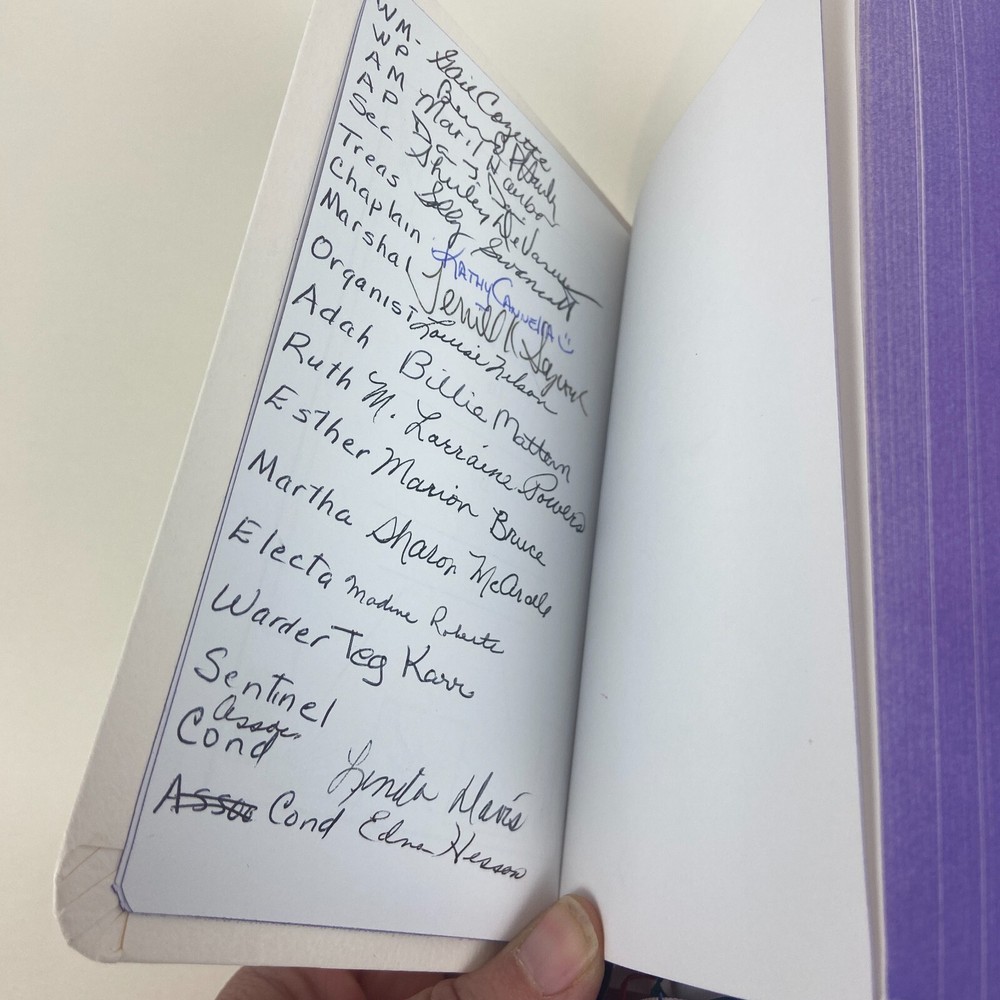 WM- Gail Cozette
WP
AM Maril
AP Daisy
Sec Shirley DeVasure
Treas Sally
Chaplain KATHY CANNELLA
Marshal
Organist Louise Nelson
Adah Billie Mattern
Ruth M. Lorraine Powers
Esther Marion Bruce
Martha Sharon McArdle
Electa Madine Roberts
Warder Teg Karr
Sentinel
Assoc.
Cond Linda Davis
Assoc Cond Edna Hesson